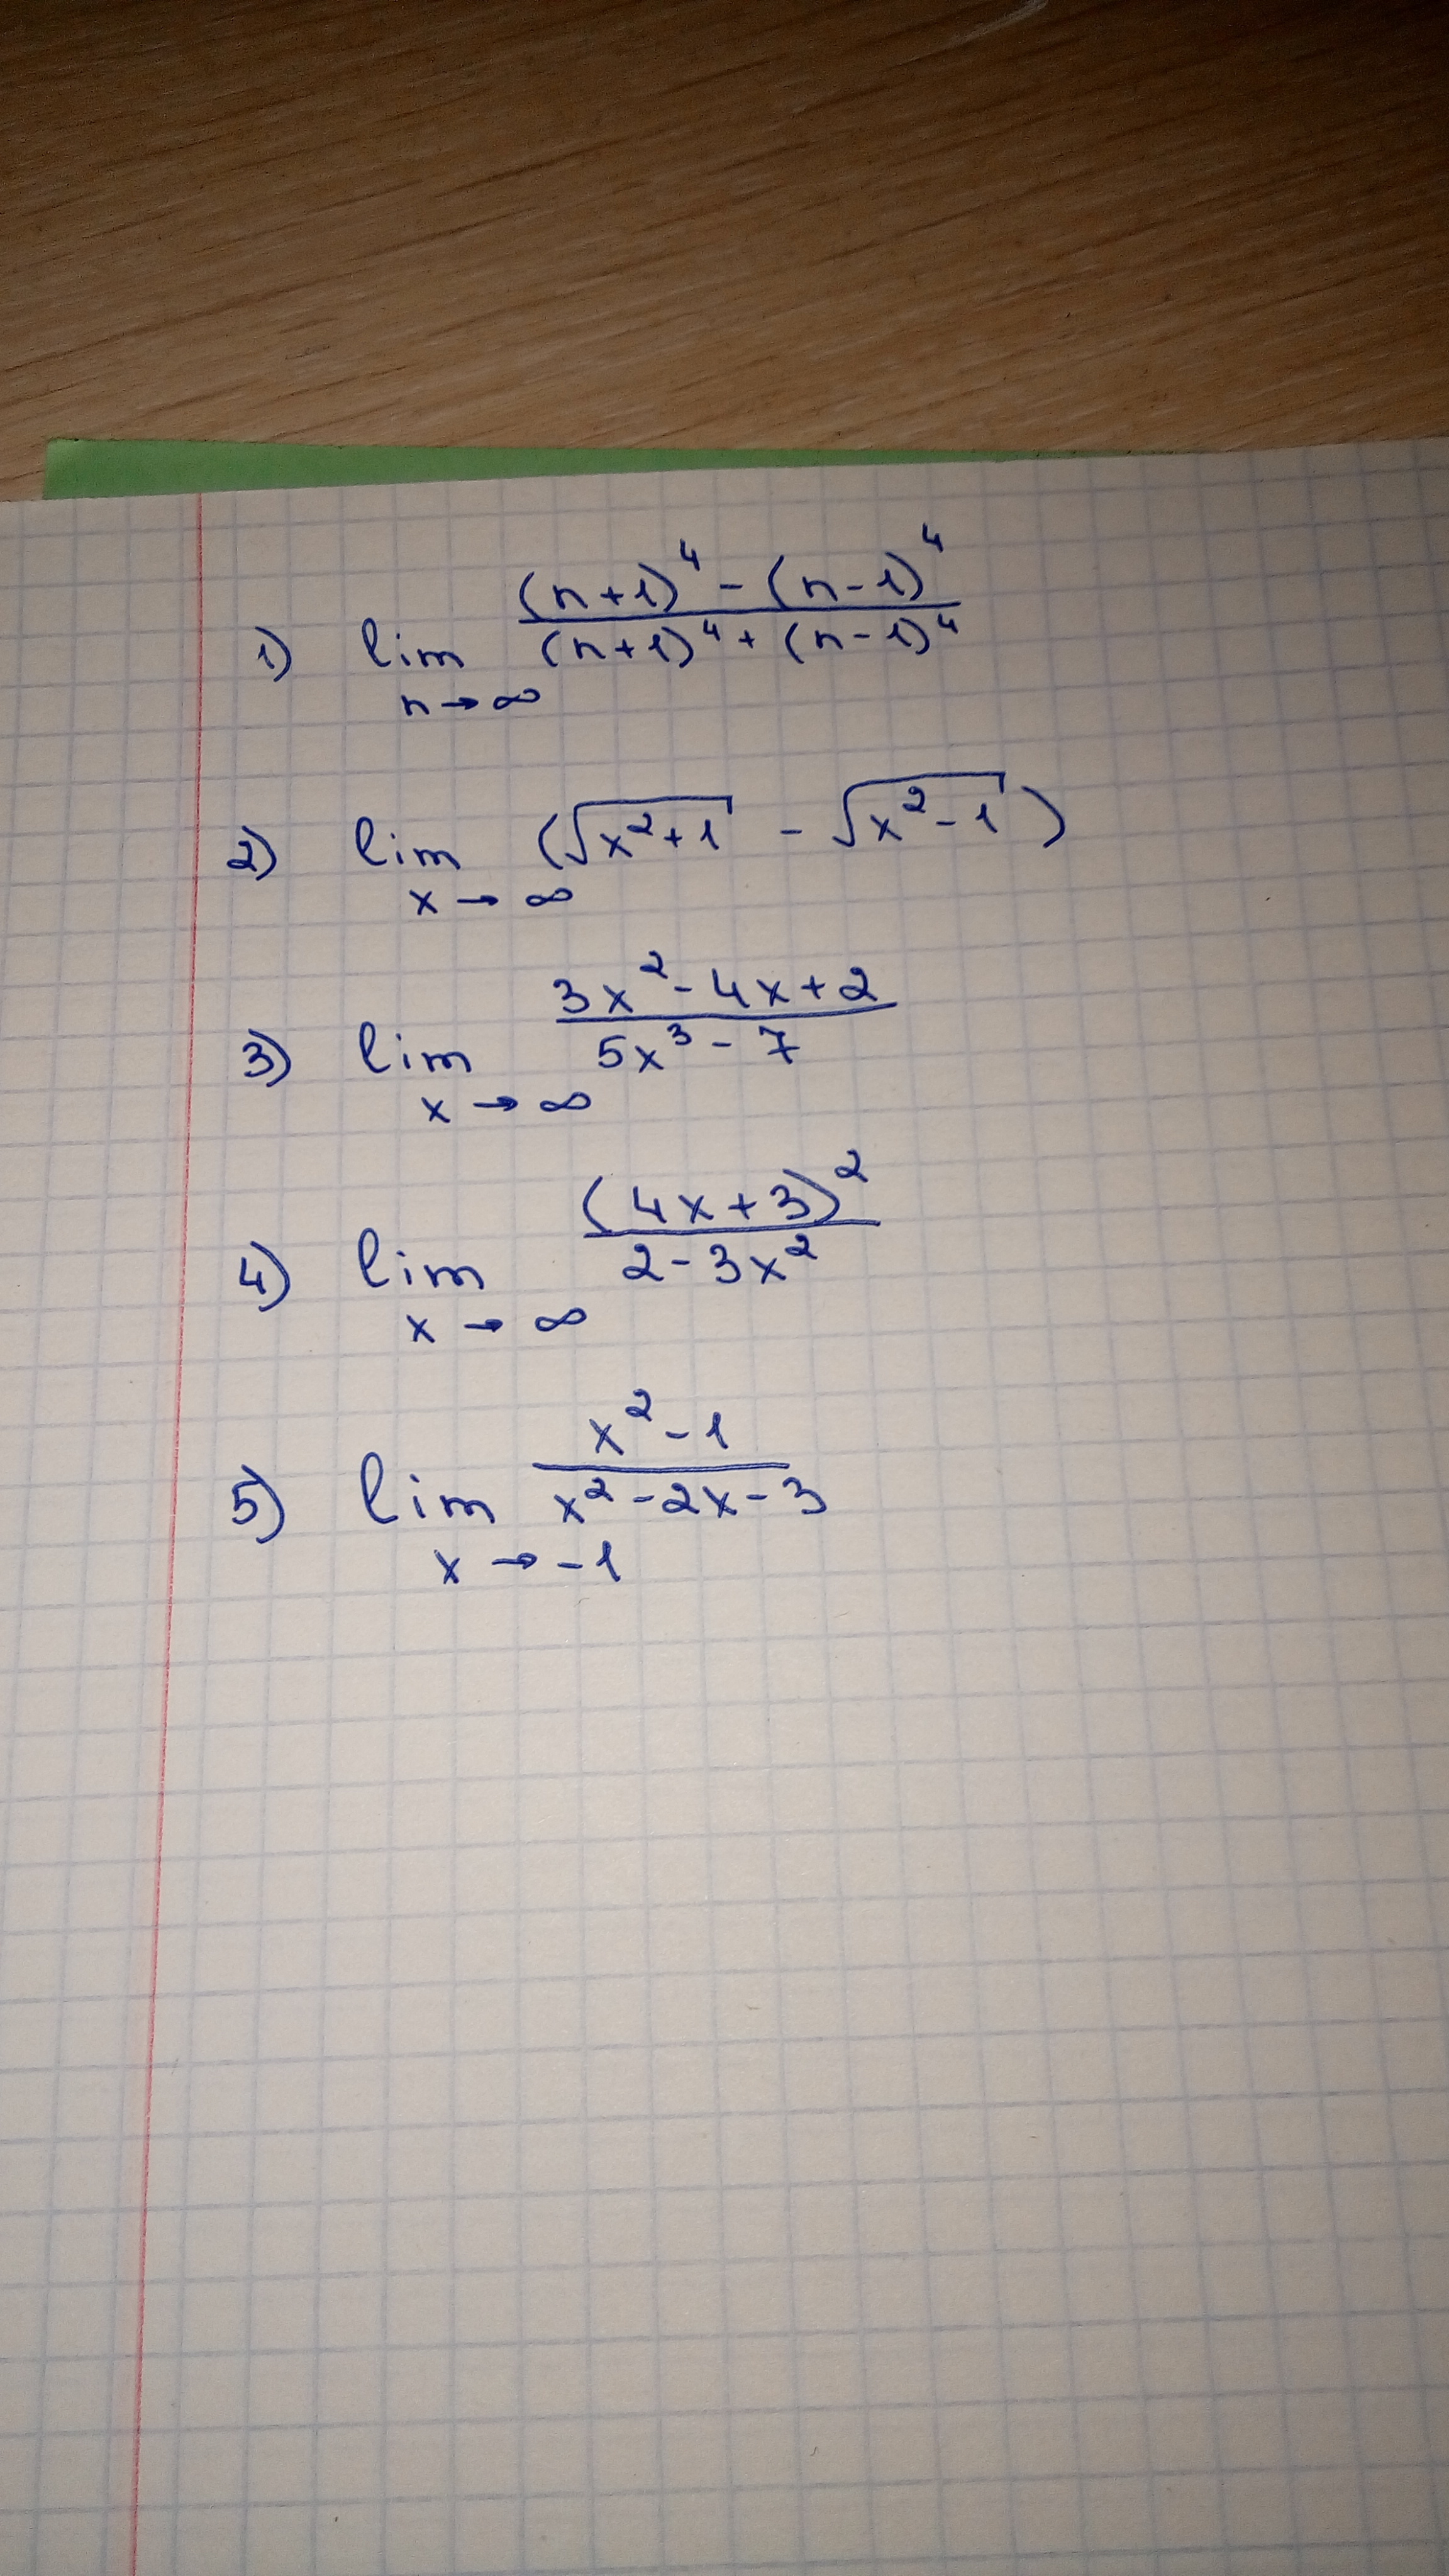 1) lim n→∞ ((n+1)^4 - (n-1)^4) / ((n+1)^4 + (n-1)^4)
2) lim x→∞ (√(x²+1) - √(x²-1))
3) lim x→∞ (3x²-4x+2) / (5x³-7)
4) lim x→∞ (4x+3)² / (2-3x²)
5) lim x→-1 (x²-1) / (x²-2x-3)